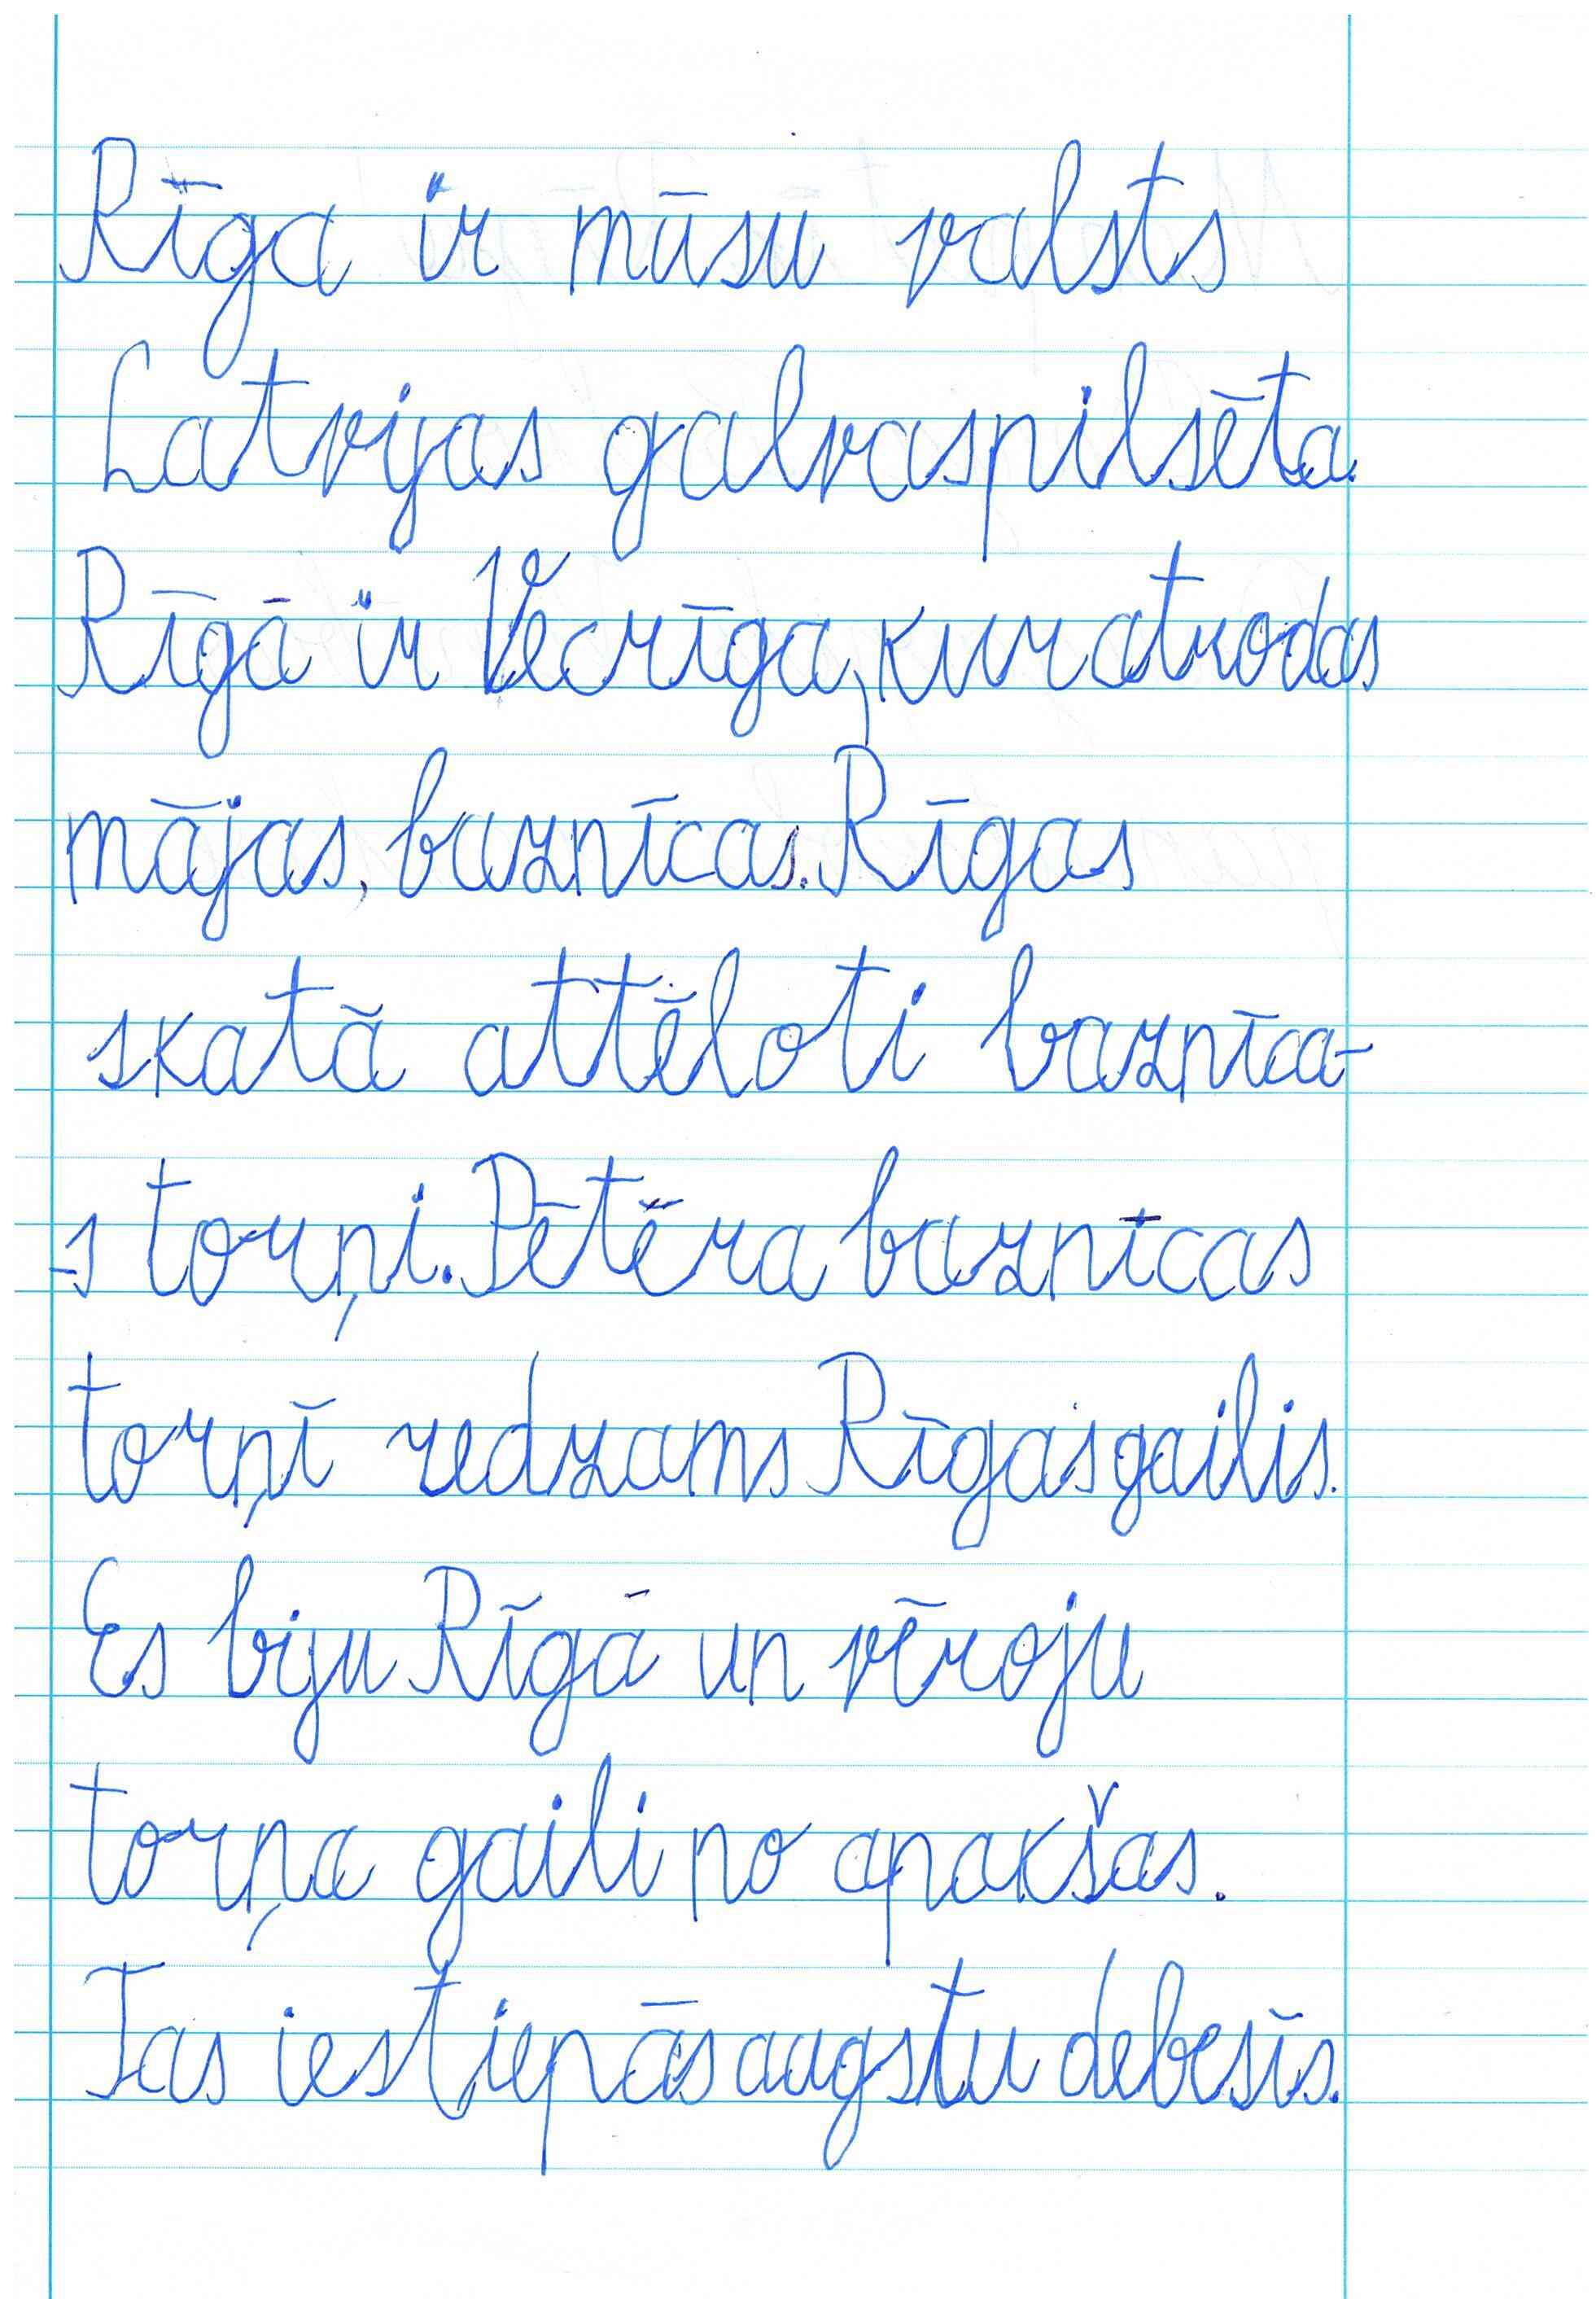 Rīga ir mūsu valsts
Latvijas galvaspilsēta.
Rīgā ir Vecrīga, kur atrodas
mājas, baznīcas. Rīgas
skatā attēloti baznīca-
-s torņi. Pētēra baznīcas
torņī redzams Rīgas gailis.
Es biju Rīgā un vēroju
torņa gaili no apakšas.
Tas iestiepās augstu debesīs.